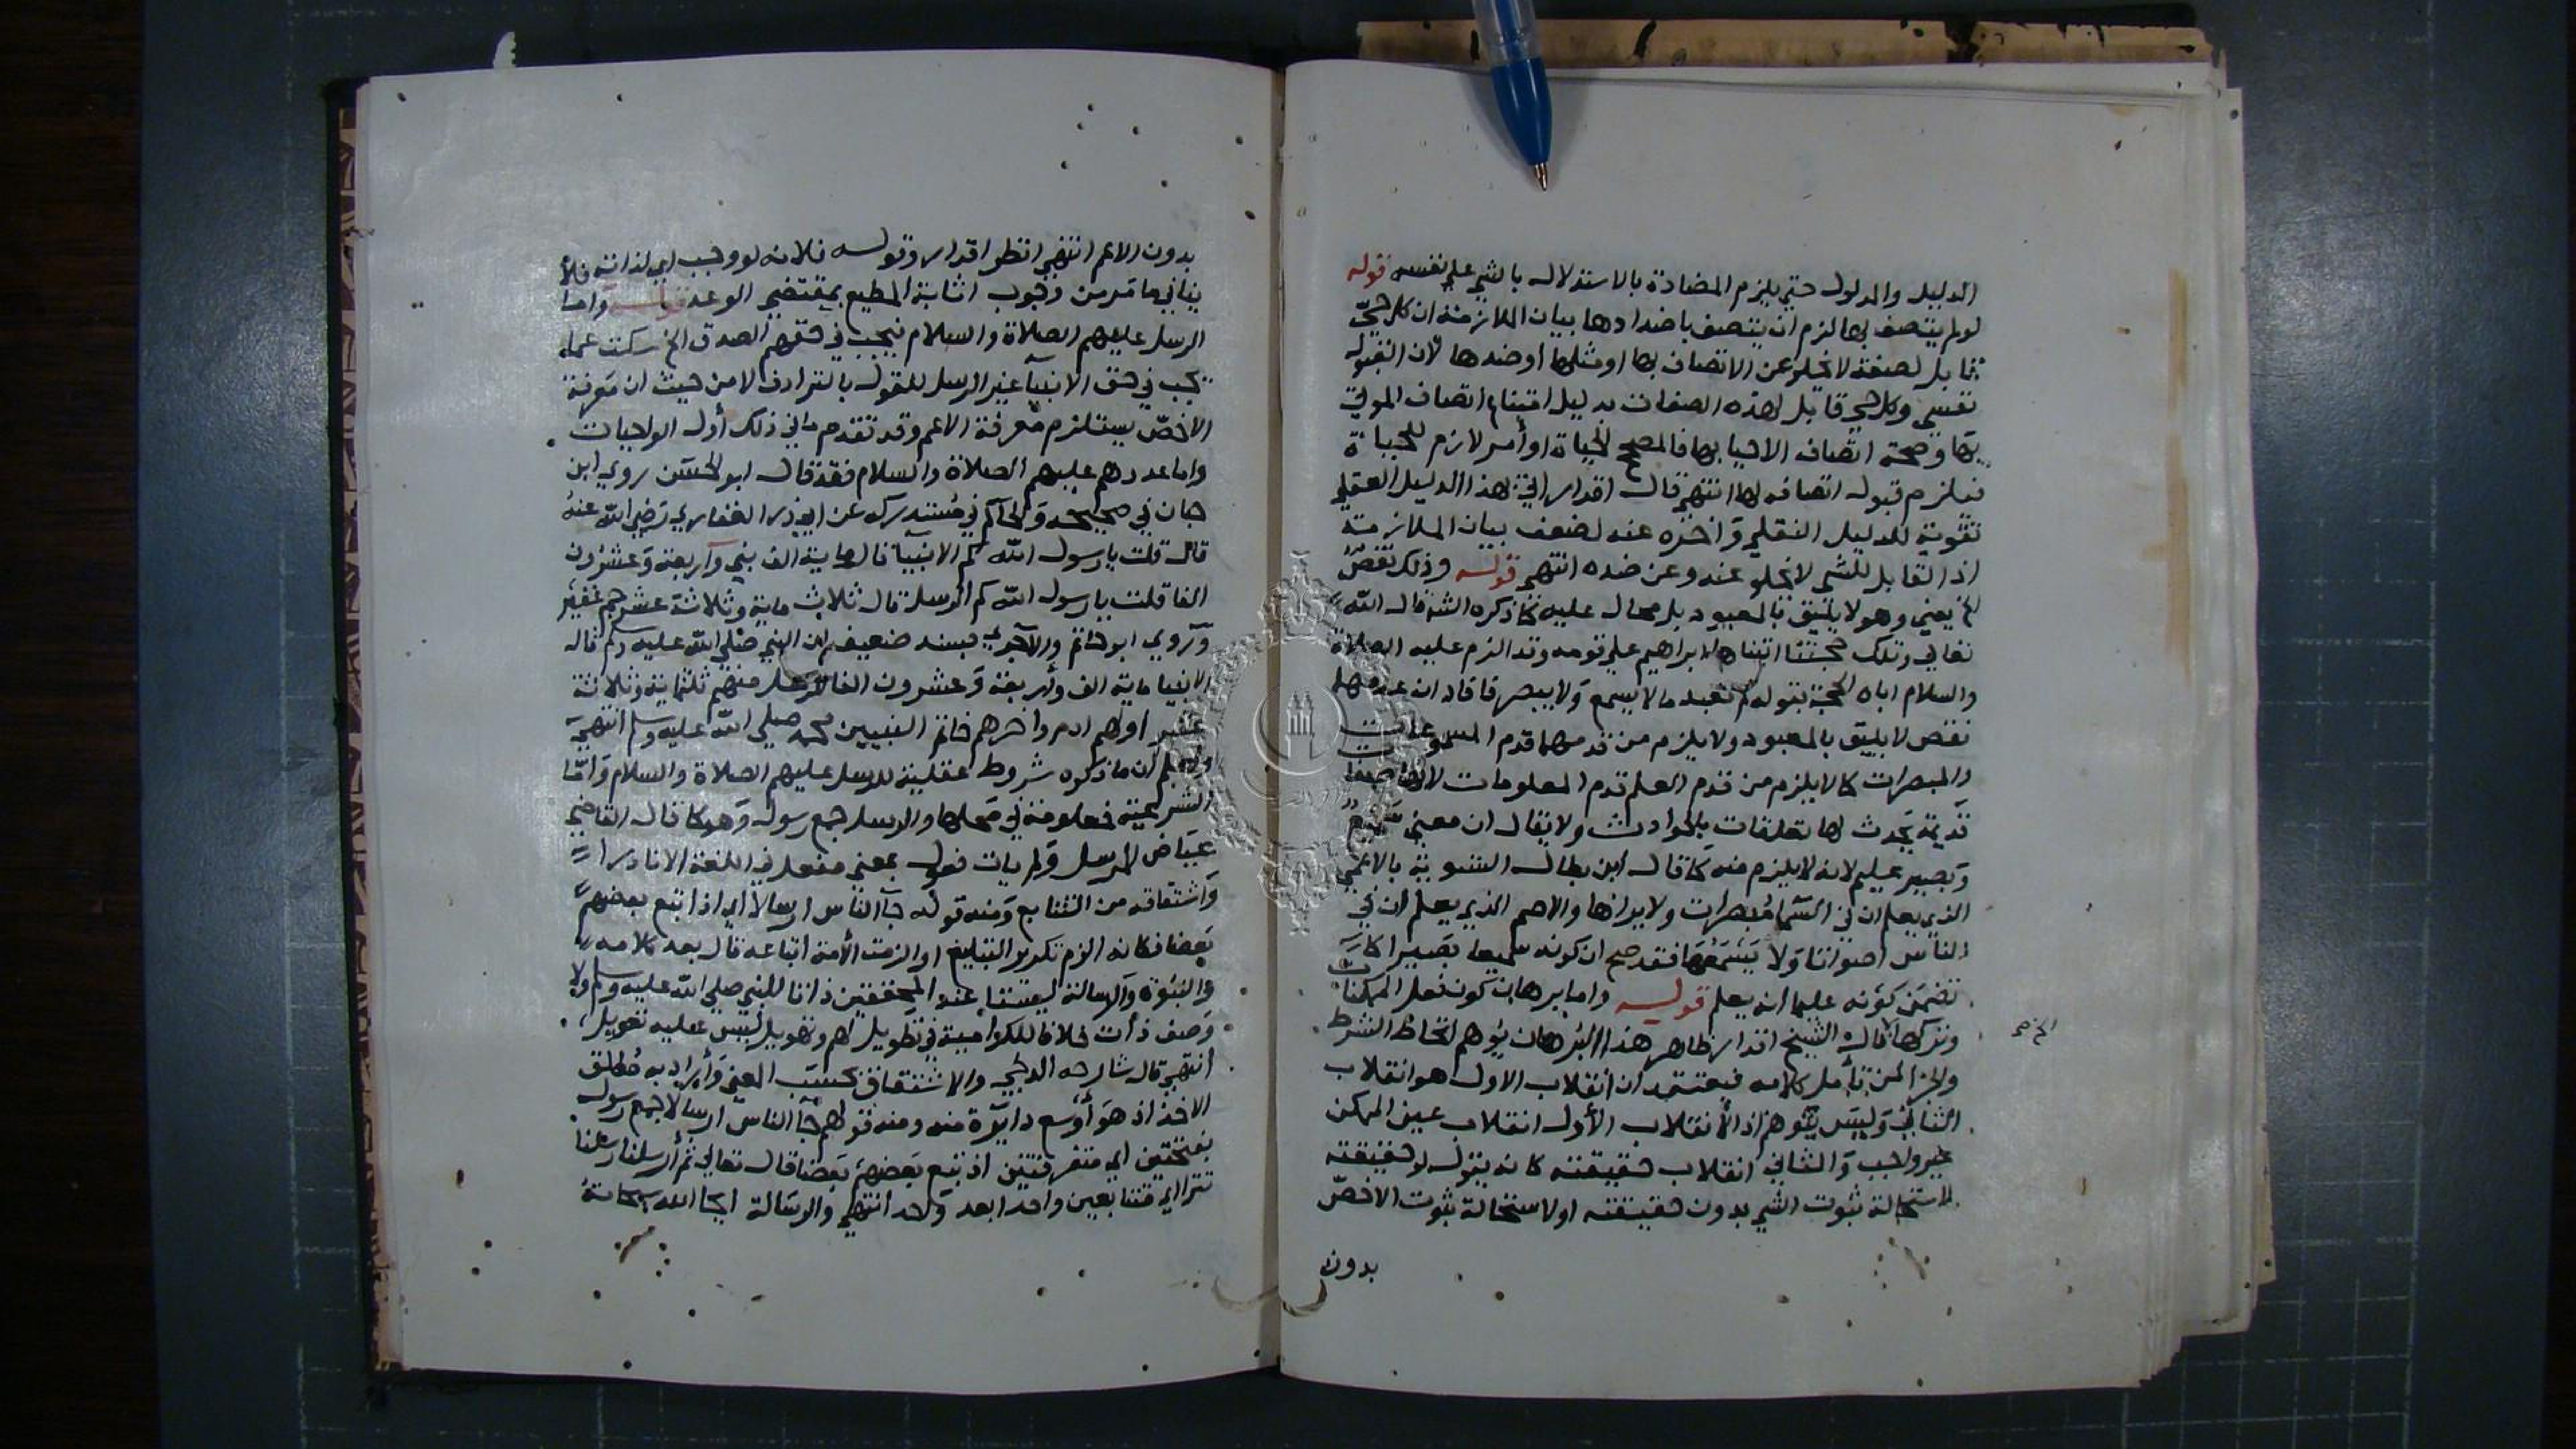 الدليل والمدلول حتي يلزم المضادة بالاستدلال بالشي علي نفسه قوله
لو لم يتصف بها لزم ان يتصف باضدادها بيان الملازمة ان كل حيّ
قابل لصفة لا يخلو عن الاتصاف بها او مثلها او ضدها لان القبول
نفسي وكل حي قابل لهذه الصفات بدليل امتناع اتصاف الموتي
بها وصحة اتصاف الاحيا بها فالمصحح الحياة او أمر لازم للحياة
فيلزم قبوله اتصافه لها انتهي قال اقدار اتي بهذا الدليل العقلي
تقوية للدليل النقلي وأخره عنه لضعف بيان الملازمة
اذ القابل للشي لا يخلو عنه وعن ضده انتهي قوله وذلك نقصٌ
الخ يعني وهو لا يليق بالمعبود بل محال عليه كما ذكره الش قال الله
تعالي وتلك حجتنا اتيناها ابراهيم علي قومه وقد الزم عليه الصلاة
والسلام اباه الحجة بقوله لم تعبد ما لا يسمع ولا يبصر فافاد ان عدمهما
نقص لا يليق بالمعبود ولا يلزم من قدمهما قدم المسموعات
والمبصرات كما لا يلزم من قدم العلم قدم المعلومات لانها صفات
قديمة يحدث لها تعلقات بالحوادث ولا يقال ان معني سميعٌ
وبصير عليم لانه لا يلزم منه كما قال ابن بطال التسوية بالاعمي
الذي يعلم ان في السماء مبصرات ولا يراها والاصم الذي يعلم ان في
الناس اصواتا ولا يسمعها فقد صح ان كونه سميعا بصيرا
تضمن كونه عليما انه يعلم قوله واما برهان كون فعل الممكنات
وتركها قال الشيخ اقدار ظاهر هذا البرهان يوهم اتحاد الشرط
الخ صح
والجزا لمن تأمل كلامه فيعتمد ان انقلاب الاول هو انقلاب
الثاني وليس يتوهم اذ الانقلاب الأول انقلاب عين الممكن
غير واجب والثاني انقلاب حقيقته كانه يقول لو حقيقته
لاستحالة ثبوت الشي بدون حقيقته او لاستحالة ثبوت الاخصّ
بدون
بدون الاعم انتهي انظر اقدار وقوله فلانه لو وجب اي لذاته فلا
ينافي ما مر من وجوب اثابة المطيع بمقتضي الوعد قوله واما
الرسل عليهم الصلاة والسلام فيجب في حقهم الصدق الخ سكت عما
يجب في حق الانبياء غير الرسل للقول بالترادف لا من حيث ان معرفة
الاخصّ يستلزم معرفة الاعم وقد تقدم ما في ذلك أول الواجبات
واما عددهم عليهم الصلاة والسلام فقد قال ابو الحسن روي ابن
حبان في صحيحه والحاكم في مستدركه عن ابي ذر الغفاري رضي الله عنه
قال قلت يا رسول الله كم الانبيا قال ماية الف نبي وأربعة وعشرون
الفا قلت يا رسول الله كم الرسل قال ثلاث ماية وثلاثة عشر جم غفير
وروي ابو حاتم والآجري بسند ضعيف ان النبي صلي الله عليه وسلم قال
الانبيا ماية الف وأربعة وعشرون الفا الرسل منهم ثلثماية وثلاثة
عشر اولهم ادم واخرهم خاتم النبيين محمد صلي الله عليه وسلم انتهي
واعلم ان ما ذكره شروط عقلية للرسل عليهم الصلاة والسلام وأمّا
الشرعية فمعلومة في محلها والرسل جمع رسول وهو كما قال القاضي
عياض المرسل ولم يات فعول بمعني مفعل في اللغة الا نادرا
واشتقاقه من التتابع ومنه قوله جآ الناس ارسالا اي اذا تبع بعضهم
بعضا فكانه الزم تكرير التبليغ او الزمت الأمة اتباعه قال بعد كلامه
والنبوة والرسالة ليستا عند المحققين ذاتا للنبي صلي الله عليه وسلم ولا
وصف ذات خلافا للكرامية في تطويل لهم وتهويل ليس عليه تعويل
انتهي قال شارحه الدلجي والاشتقاق بحسب المعني وأراد به مطلق
الاخذ اذ هو أوسع دايرة منه ومنه قولهم جآ الناس ارسالا جمع رسول
بفتحتين اي متفرقين اذ تبع بعضهم بعضا قال تعالي ثم أرسلنا رسلنا
تترا اي متتابعين واحدا بعد واحد انتهي والرسالة ايجا الله سبحانه